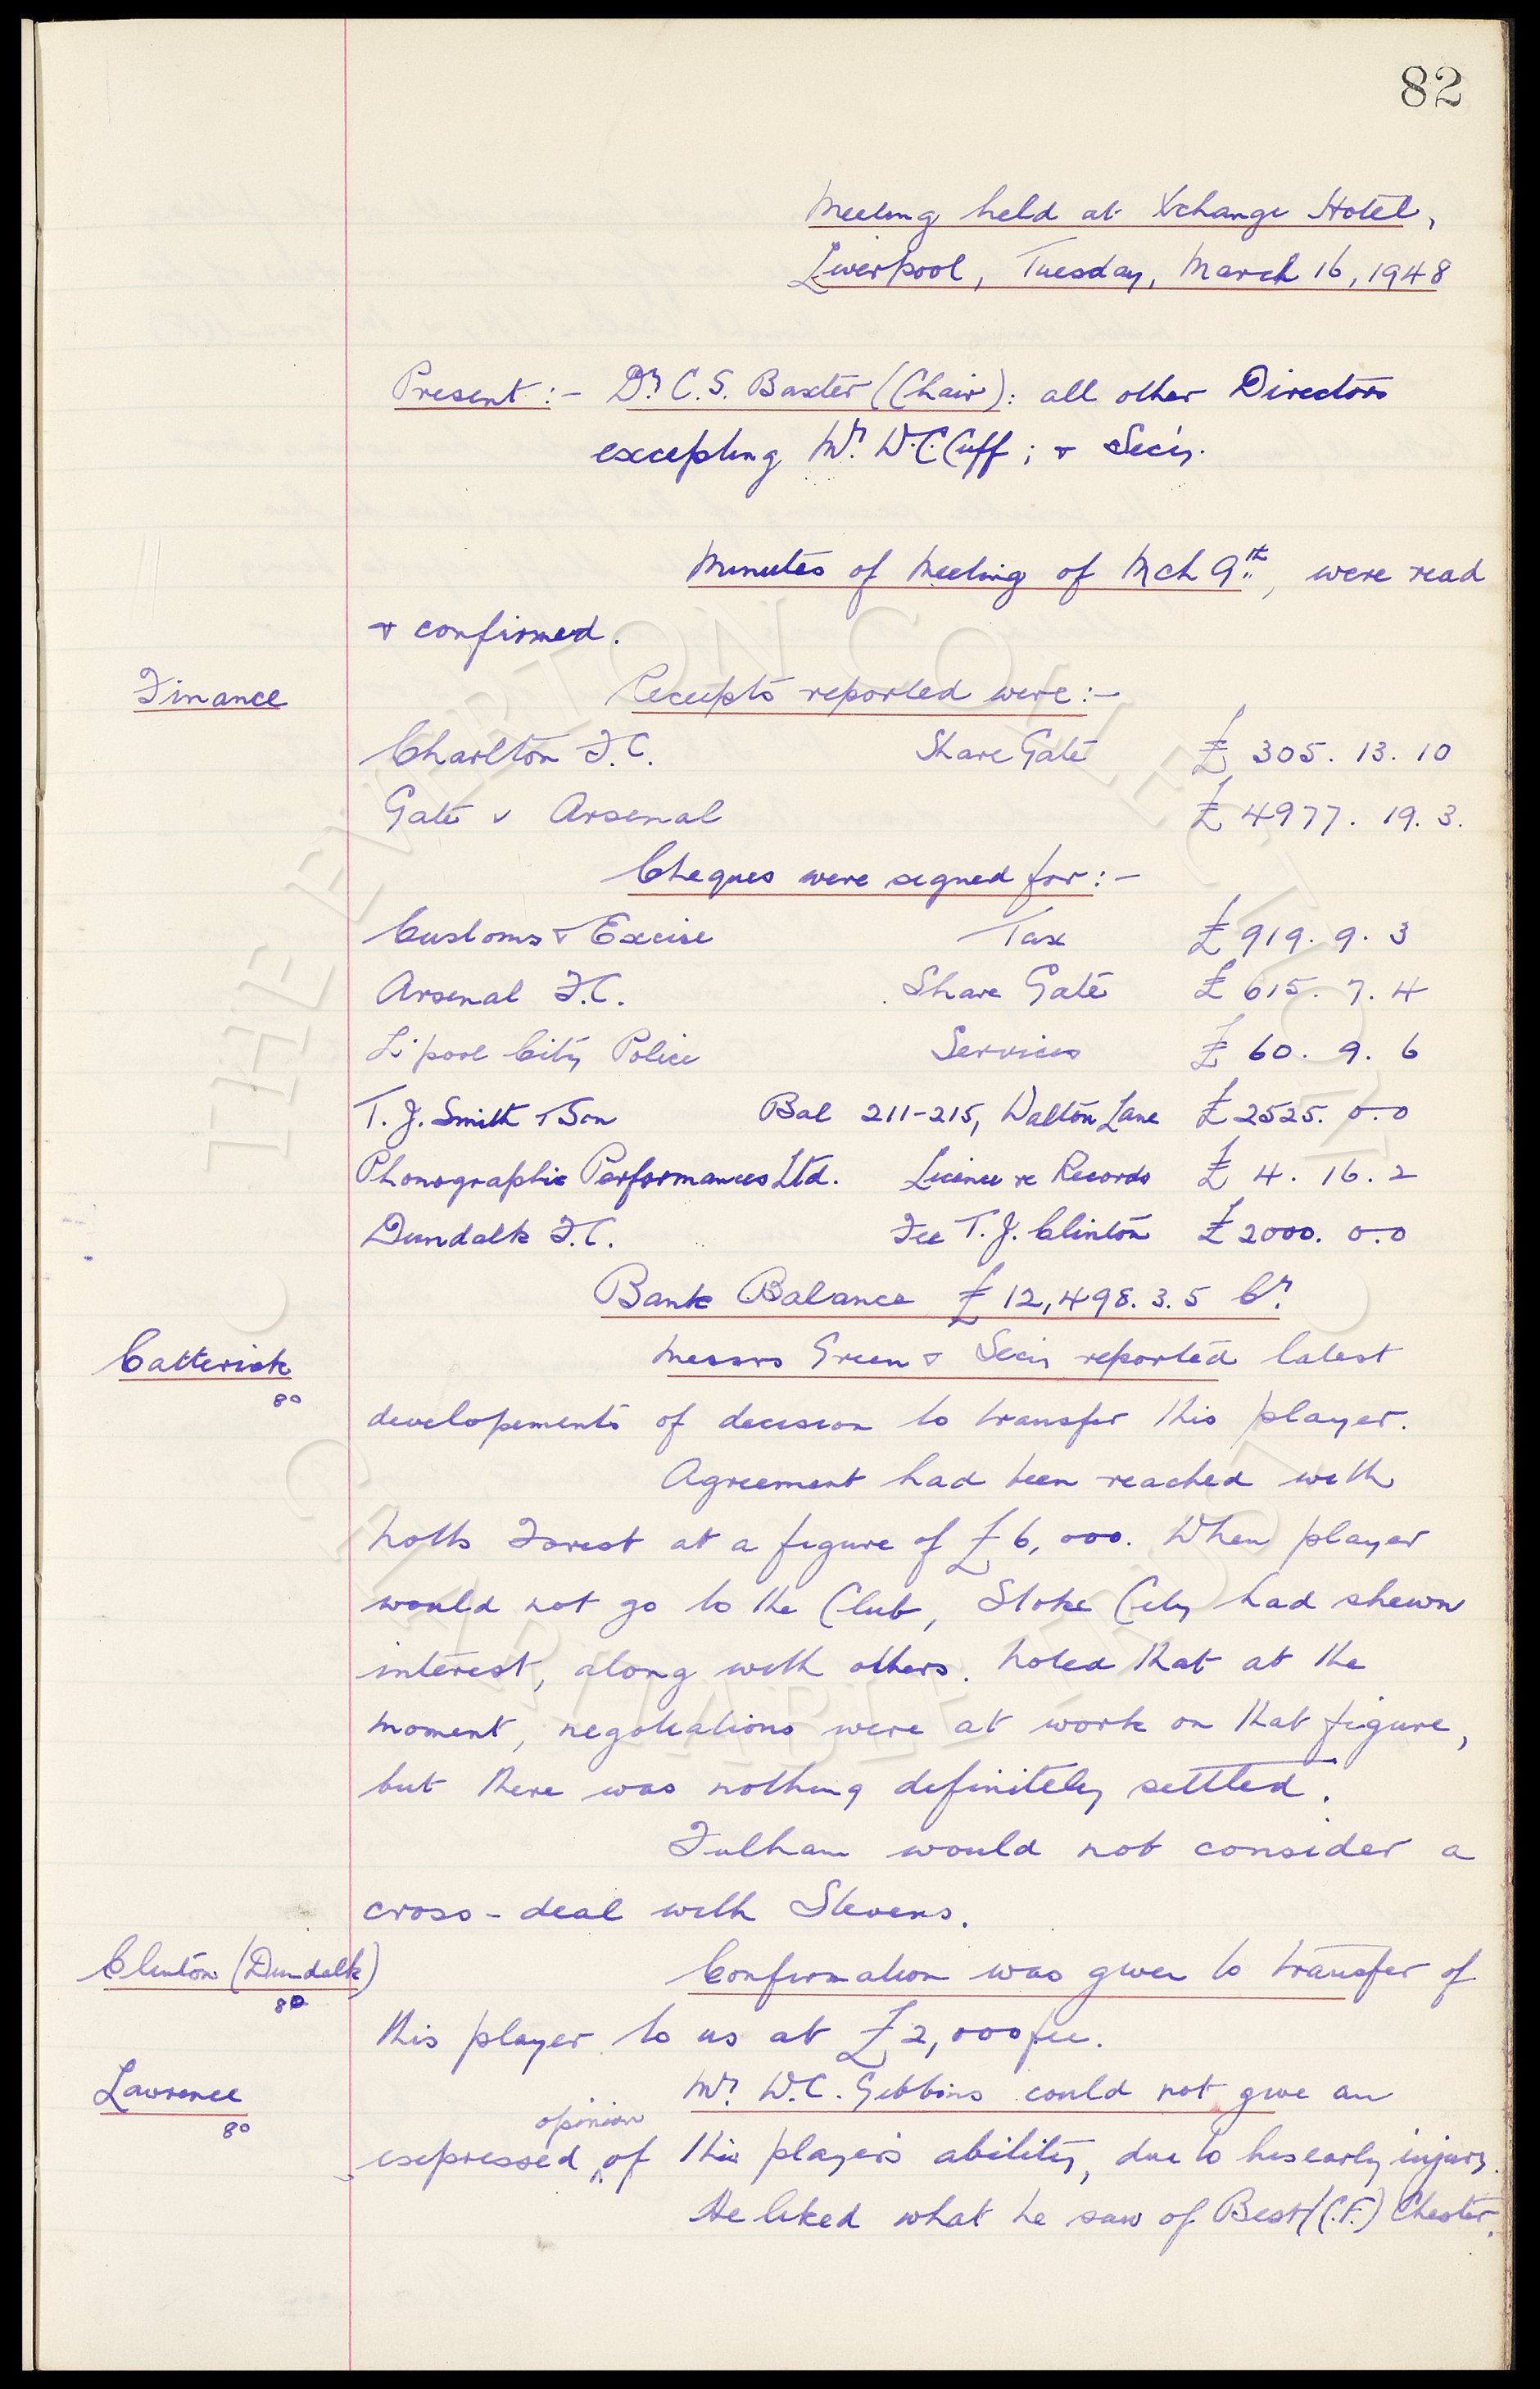 82
Meeting held at Xchange Hotel,
Liverpool, Tuesday, March 16, 1948
Present :- Dr. C. S. Baxter (Chair): all other Directors
excepting Mr. W.C. Cuff ; & Secy.
Minutes of Meeting of Mch 9th, were read
& confirmed.
Finance
Receipts reported were :-
Charlton F.C. Share Gate £ 305. 13. 10
Gate v Arsenal £ 4977. 19. 3.
Cheques were signed for :-
Customs & Excise Tax £ 919. 9. 3
Arsenal F.C. Share Gate £ 615. 7. 4
L'pool City Police Services £ 60. 9. 6
T. J. Smith & Son Bal 211-215, Walton Lane £ 2525. 0.0
Phonographic Performances Ltd. Licence re Records £ 4. 16. 2
Dundalk F.C. Fee T. J. Clinton £ 2000. 0.0
Bank Balance £ 12,498. 3. 5 Cr.
Catterick
80
Messrs Green & Secy reported latest
developements of decision to transfer this player.
Agreement had been reached with
Notts Forest at a figure of £ 6,000. When player
would not go to the Club, Stoke City had shewn
interest, along with others. Noted that at the
moment, negotiations were at work on that figure,
but there was nothing definitely settled.
Fulham would not consider a
cross-deal with Stevens.
Clinton (Dundalk)
80
Confirmation was given to transfer of
this player to us at £ 2,000 fee.
Lawrence
80
Mr. W.C. Gibbins could not give an
opinion
expressed ^ of this player's ability, due to his early injury.
He liked what he saw of Best (C.F.) Chester.
THE EVERTON COLLECTION
CHARITABLE TRUST